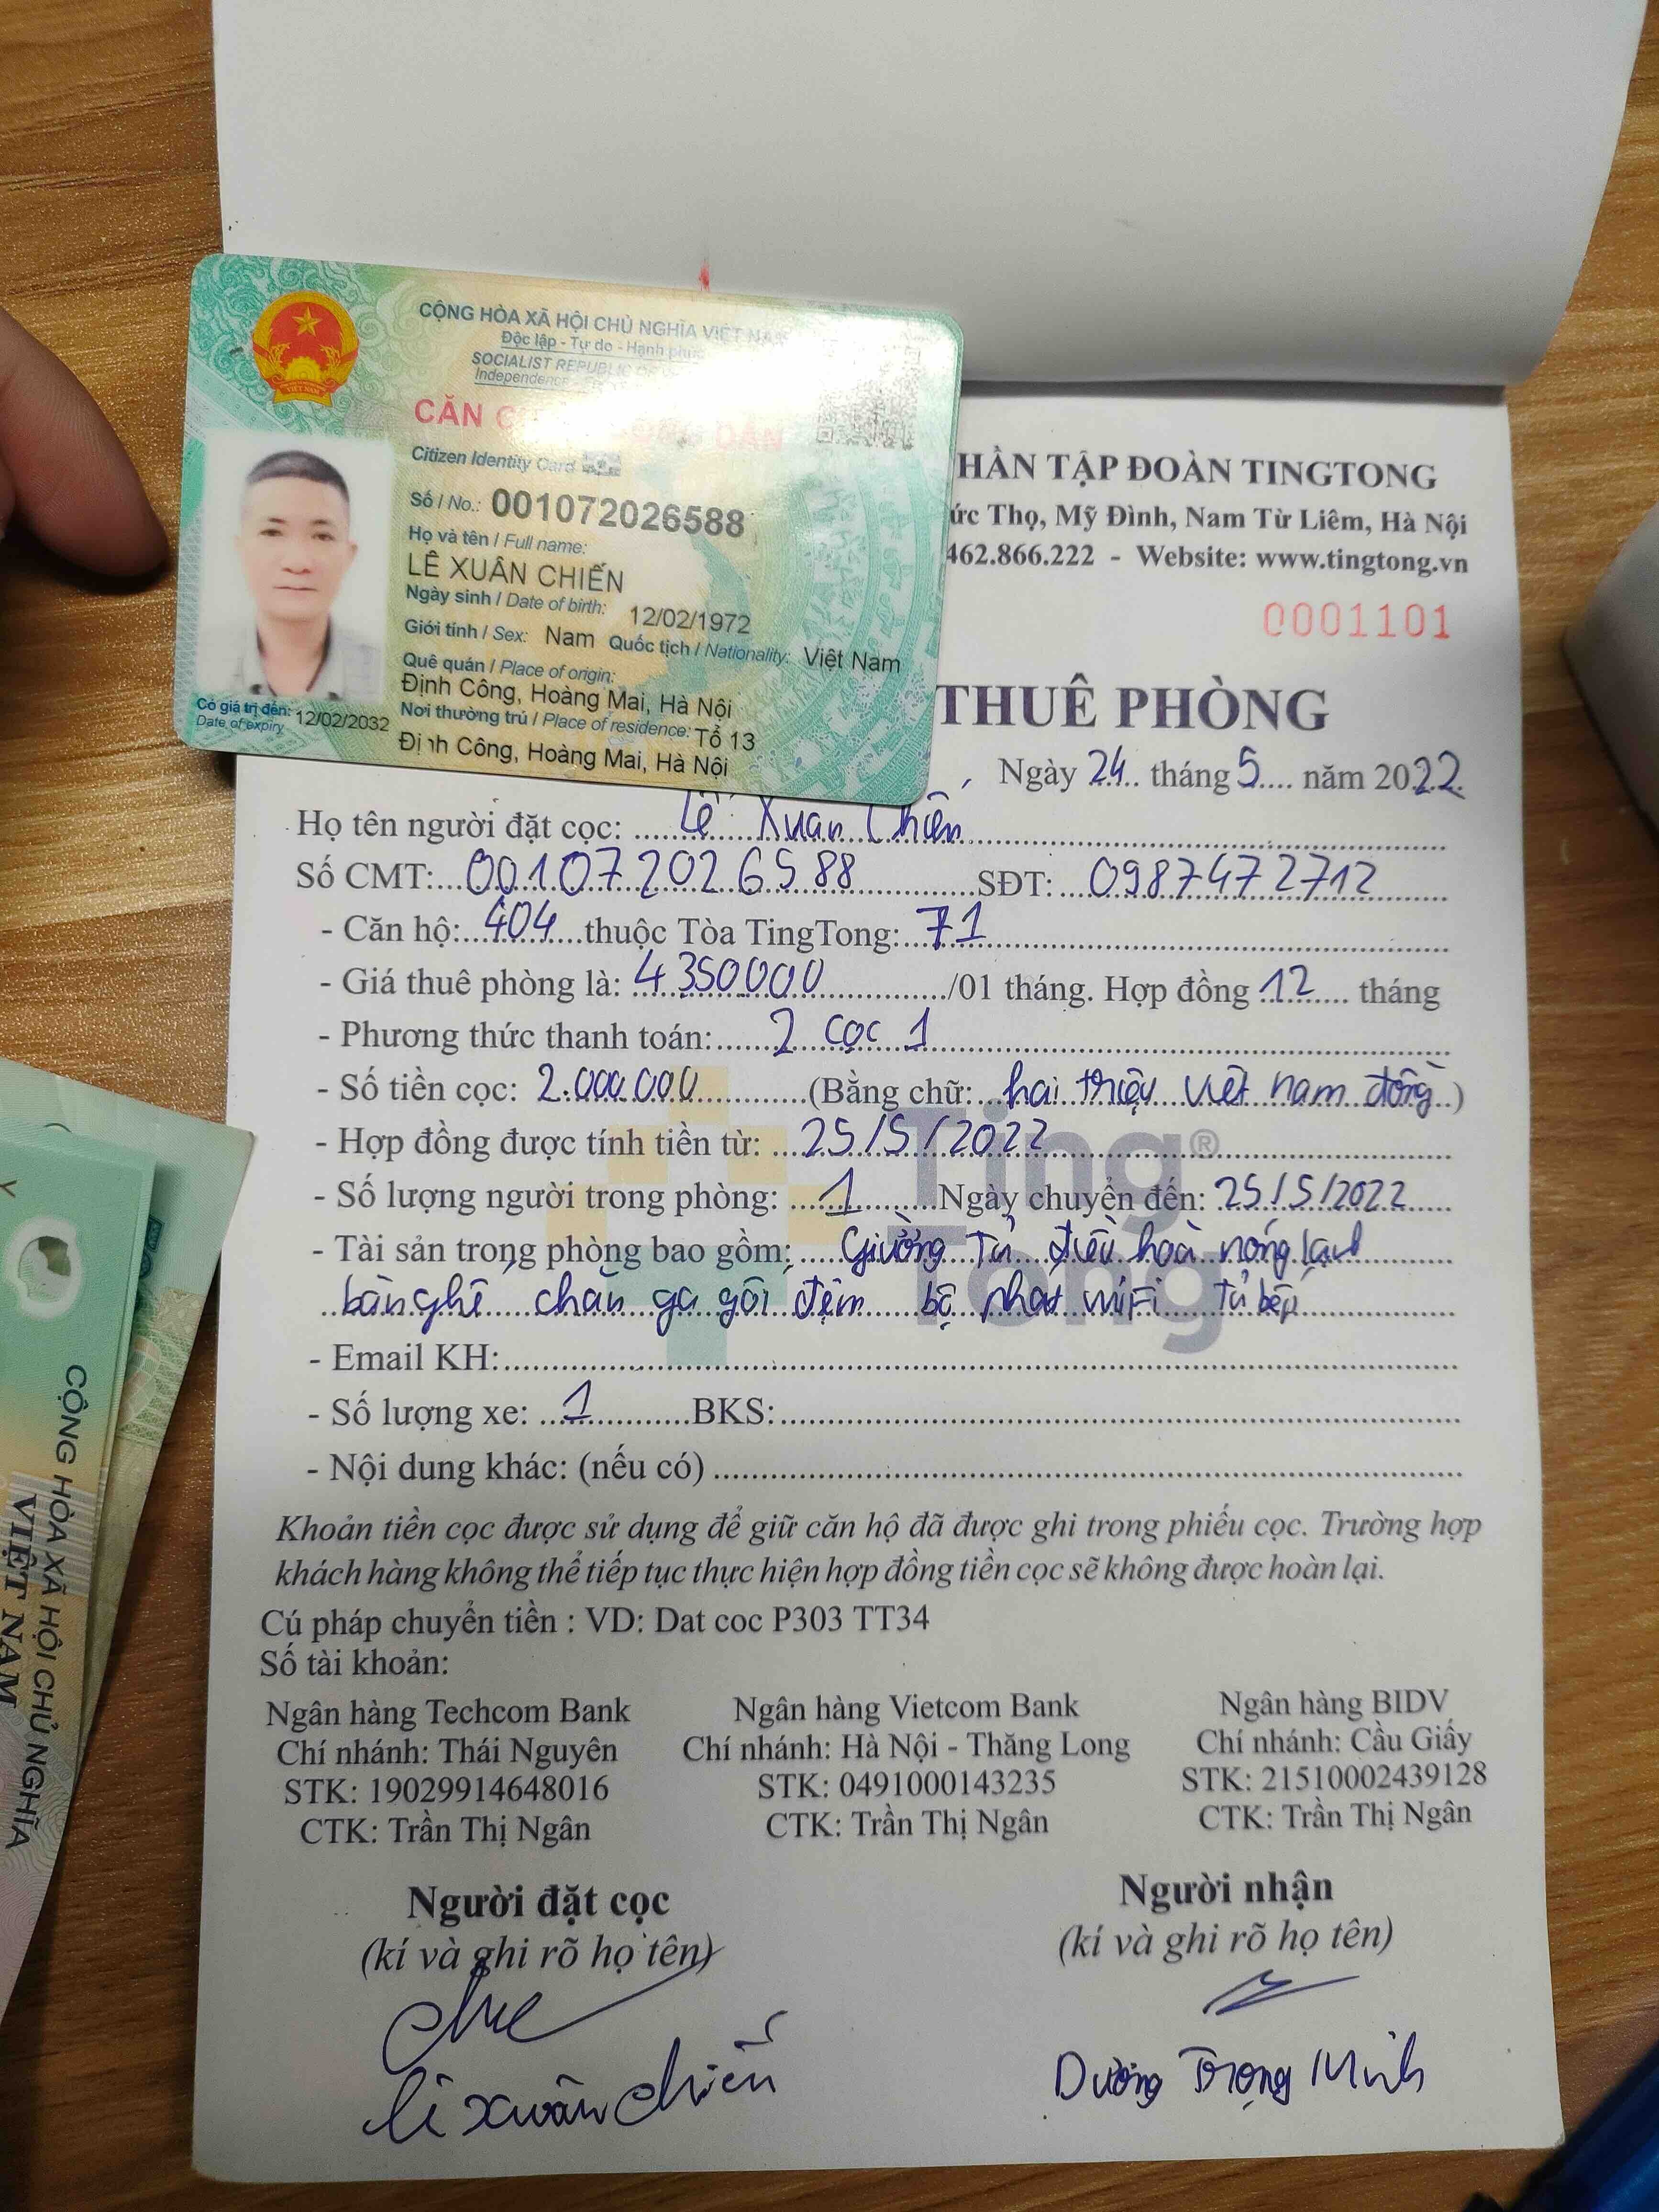 CỘNG HÒA XÃ HỘI CHỦ NGHĨA VIỆT NAM
Độc lập - Tự do - Hạnh phúc
SOCIALIST REPUBLIC
Independence
CĂN CƯỚC CÔNG DÂN
Citizen Identity Card
Số / No.: 001072026588
Họ và tên / Full name:
LÊ XUÂN CHIẾN
Ngày sinh / Date of birth: 12/02/1972
Giới tính / Sex: Nam Quốc tịch / Nationality: Việt Nam
Quê quán / Place of origin:
Định Công, Hoàng Mai, Hà Nội
Nơi thường trú / Place of residence: Tổ 13
Định Công, Hoàng Mai, Hà Nội
Có giá trị đến: 12/02/2032
Date of expiry
HẦN TẬP ĐOÀN TINGTONG
ức Thọ, Mỹ Đình, Nam Từ Liêm, Hà Nội
462.866.222 - Website: www.tingtong.vn
0001101
THUÊ PHÒNG
Ngày 24 tháng 5 năm 2022
Họ tên người đặt cọc: Lê Xuân Chiến
Số CMT: 001072026588 SĐT: 0987472712
- Căn hộ: 404 thuộc Tòa TingTong: 71
- Giá thuê phòng là: 4350000 /01 tháng. Hợp đồng 12 tháng
- Phương thức thanh toán: 2 cọc 1
- Số tiền cọc: 2.000.000 (Bằng chữ: hai triệu việt nam đồng)
- Hợp đồng được tính tiền từ: 25/5/2022
- Số lượng người trong phòng: 1 Ngày chuyển đến: 25/5/2022
- Tài sản trong phòng bao gồm: Giường Tủ điều hoà nóng lạnh
bàn ghế chăn ga gối đệm bộ phát wiFi tủ bếp
- Email KH:
- Số lượng xe: 1 BKS:
- Nội dung khác: (nếu có)
Khoản tiền cọc được sử dụng để giữ căn hộ đã được ghi trong phiếu cọc. Trường hợp
khách hàng không thể tiếp tục thực hiện hợp đồng tiền cọc sẽ không được hoàn lại.
Cú pháp chuyển tiền : VD: Dat coc P303 TT34
Số tài khoản:
Ngân hàng Techcom Bank
Chí nhánh: Thái Nguyên
STK: 19029914648016
CTK: Trần Thị Ngân
Ngân hàng Vietcom Bank
Chí nhánh: Hà Nội - Thăng Long
STK: 0491000143235
CTK: Trần Thị Ngân
Ngân hàng BIDV
Chí nhánh: Cầu Giấy
STK: 21510002439128
CTK: Trần Thị Ngân
Người đặt cọc
(kí và ghi rõ họ tên)
Lê Xuân Chiến
Người nhận
(kí và ghi rõ họ tên)
Dương Trọng Minh
Ting Tong®
CỘNG HÒA XÃ HỘI CHỦ NGHĨA
VIỆT NAM